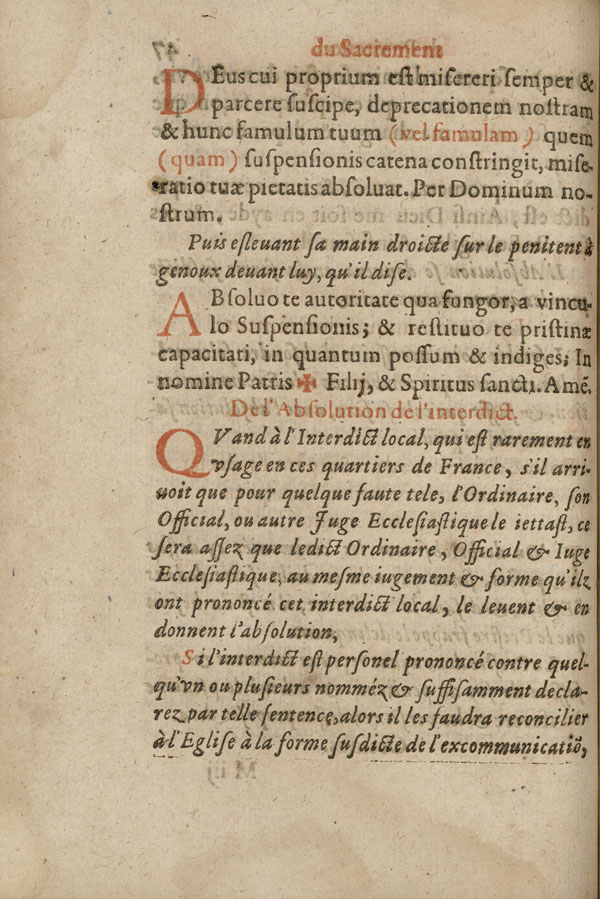 du Sacrement
DEus cui proprium est misereri semper &
parcere suscipe, deprecationem nostram
& hunc famulum tuum (vel famulam) quem
(quam) suspensionis catena constringit, mise-
ratio tuæ pietatis absoluat. Per Dominum no-
strum.
Puis esleuant sa main droicte sur le penitent à
genoux deuant luy, qu'il dise.
ABsoluo te autoritate qua fungor, a vincu-
lo Suspensionis; & restituo te pristinæ
capacitati, in quantum possum & indiges; In
nomine Patris ✠ Filij, & Spiritus sancti. Amẽ.
De l'Absolution de l'interdict.
QVand à l'Interdict local, qui est rarement en
vsage en ces quartiers de France, s'il arri-
uoit que pour quelque faute tele, l'Ordinaire, son
Official, ou autre Juge Ecclesiastique le iettast, ce
sera assez que ledict Ordinaire, Official & Iuge
Ecclesiastique, au mesme iugement & forme qu'ilz
ont prononcé cet interdict local, le leuent & en
donnent l'absolution,
Si l'interdict est personel prononcé contre quel-
qu'vn ou plusieurs nomméz & suffisamment decla-
rez par telle sentence, alors il les faudra reconcilier
à l'Eglise à la forme susdicte de l'excommunicatiõ,